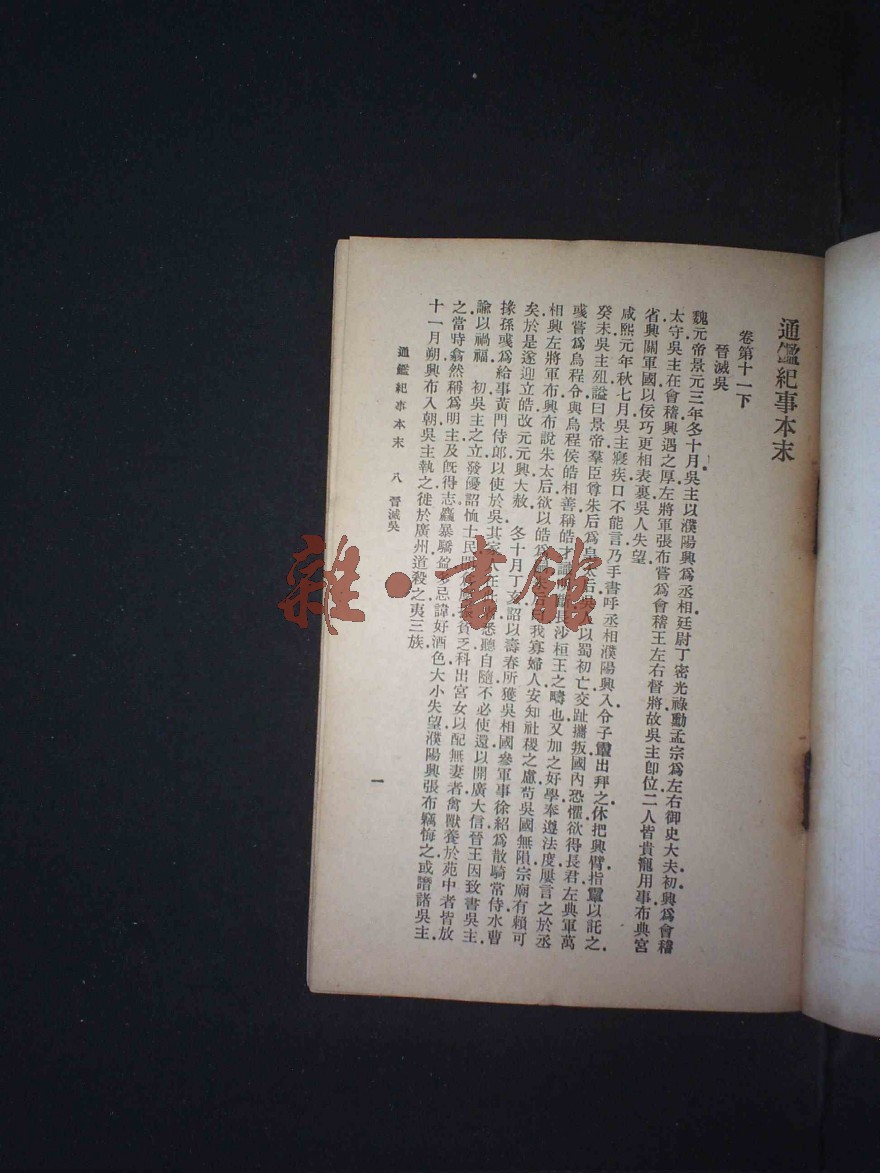 通鑑紀事本末
卷第十一下
晉滅吳
魏元帝景元三年冬十月吳主以濮陽興爲丞相廷尉丁密光祿勳孟宗爲左右御史大夫初興爲會稽
太守吳主在會稽興遇之厚左將軍張布嘗爲會稽王左右督將故吳主卽位二人皆貴寵用事布典宮
省興關軍國以佞巧更相表裏吳人失望
咸熙元年秋七月吳主寢疾口不能言乃手書呼丞相濮陽興入令子𩅦出拜之休把興臂指𩅦以託之
癸未吳主殂諡曰景帝羣臣尊朱后爲皇太后以蜀初亡交趾攜叛國內恐懼欲得長君左典軍萬
彧嘗爲烏程令與烏程侯皓相善稱皓才識長沙桓王之疇也又加之好學奉遵法度屢言之於丞
相興左將軍布興布說朱太后欲以皓爲我寡婦人安知社稷之慮苟吳國無隕宗廟有賴可
矣於是遂迎立皓改元元興大赦 冬十月丁亥詔以壽春所獲吳相國參軍事徐紹爲散騎常侍水曹
掾孫彧爲給事黃門侍郎以使於吳其家人在此者悉聽自隨不必使還以開廣大信晉王因致書吳主
諭以禍福 初吳主之立發優詔恤士民開貧乏科出宮女以配無妻者禽獸養於苑中者皆放
之當時翕然稱爲明主及旣得志麤暴驕盈多忌諱好酒色大小失望濮陽興張布竊悔之或譖諸吳主
十一月朔興布入朝吳主執之徙於廣州道殺之夷三族
通鑑紀事本末 八 晉滅吳
一
雜·書館